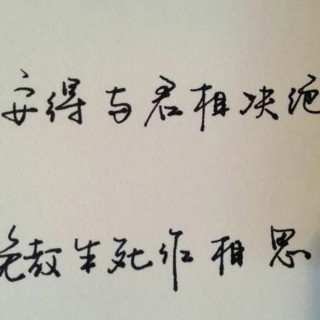 安得与君相决绝
免教生死作相思